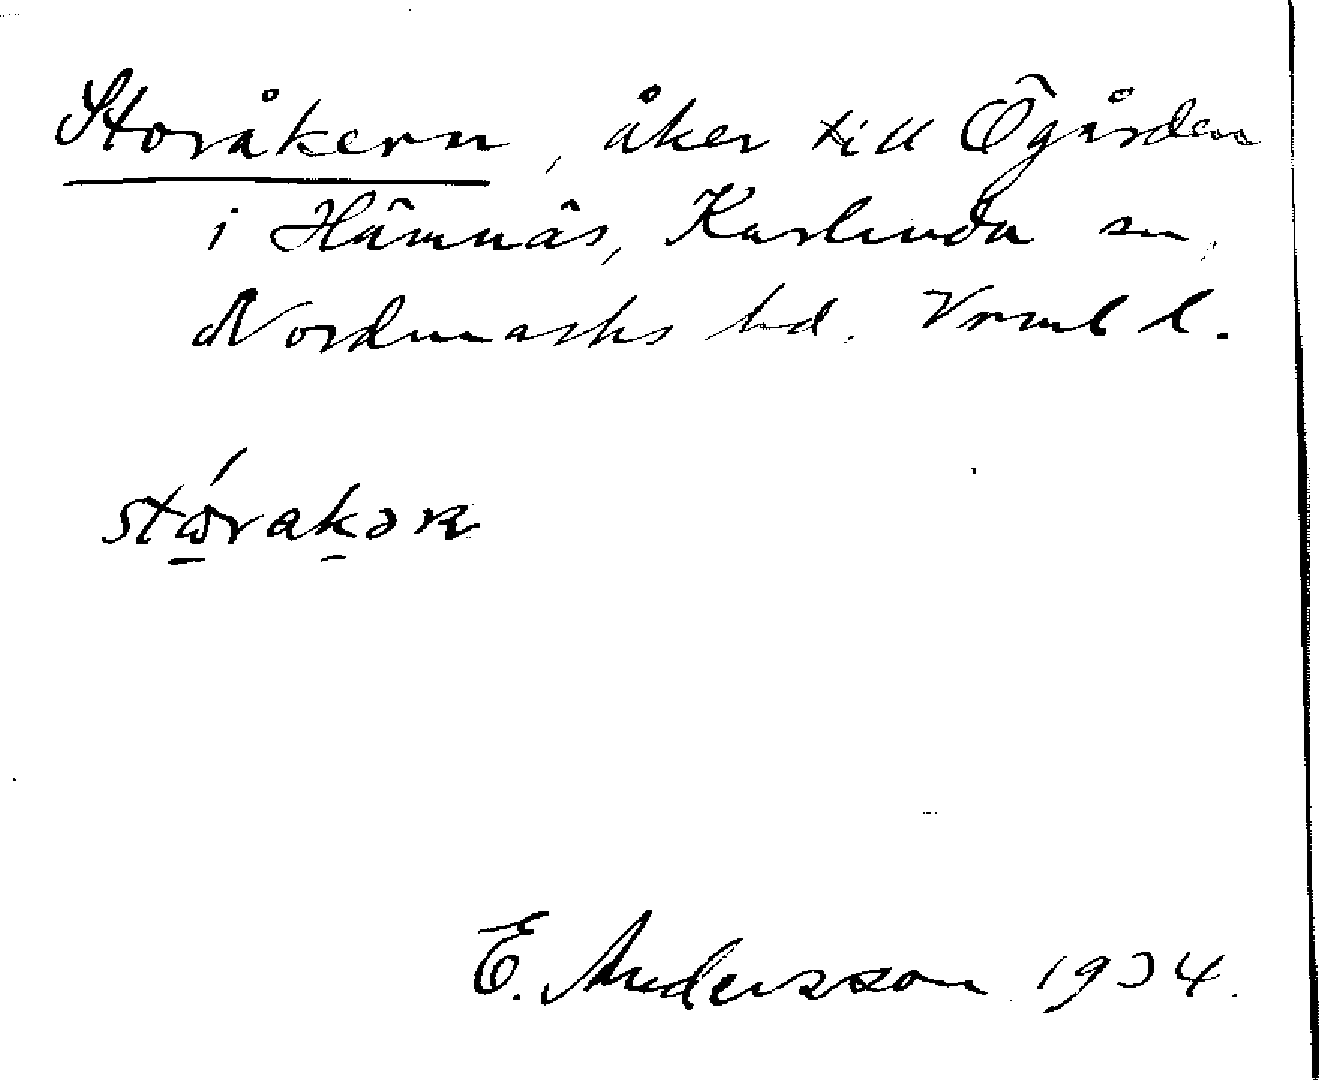 Storåkern, åker till Ögården
i Hämnäs, Karlanda sn,
Nordmarks hd. Vrml l.
stórakər
E. Andersson 1934.